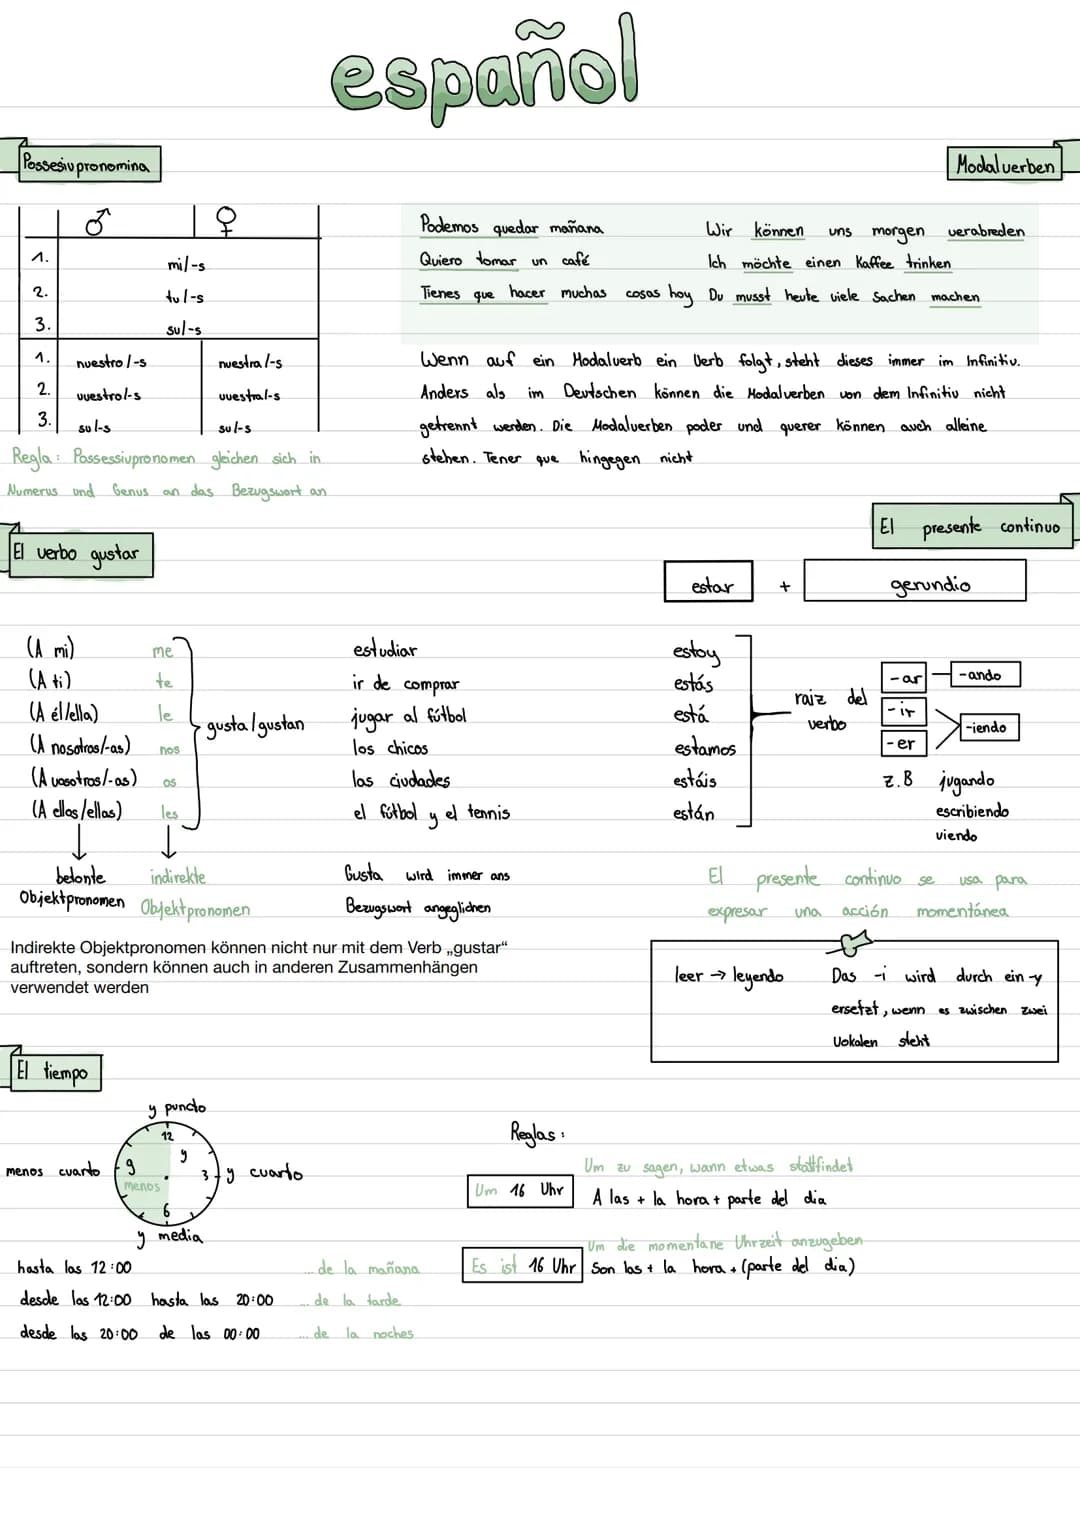 español
Possesivpronomina
Modalverben
♂ ♀
1. mi/-s
2. tu/-s
3. su/-s
1. nuestro/-s nuestra/-s
2. vuestro/-s vuestra/-s
3. su/-s su/-s
Regla: Possessivpronomen gleichen sich in
Numerus und Genus an das Bezugswort an
Podemos quedar mañana Wir können uns morgen verabreden
Quiero tomar un café Ich möchte einen Kaffee trinken
Tienes que hacer muchas cosas hoy Du musst heute viele Sachen machen
Wenn auf ein Modalverb ein Verb folgt, steht dieses immer im Infinitiv.
Anders als im Deutschen können die Modalverben von dem Infinitiv nicht
getrennt werden. Die Modalverben poder und querer können auch alleine
stehen. Tener que hingegen nicht
El verbo gustar
(A mi) me
(A ti) te
(A él/ella) le
(A nosotros/-as) nos
(A vosotros/-as) os
(A ellos/ellas) les
gusta/gustan
estudiar
ir de comprar
jugar al fútbol
los chicos
las ciudades
el fútbol y el tennis
↓ ↓
betonte Objektpronomen
indirekte Objektpronomen
Gusta wird immer ans
Bezugswort angeglichen
Indirekte Objektpronomen können nicht nur mit dem Verb „gustar“
auftreten, sondern können auch in anderen Zusammenhängen
verwendet werden
El presente continuo
estar + gerundio
estoy
estás
está
estamos
estáis
están
raiz del
verbo
-ar -ando
-ir
-er
-iendo
z.B jugando
escribiendo
viendo
El presente continuo se usa para
expresar una acción momentánea
leer → leyendo Das -i wird durch ein -y
ersetzt, wenn es zwischen zwei
Vokalen steht
El tiempo
y puncto
12
y
menos cuarto 9
menos
3 y cuarto
6
y media
hasta las 12:00 ... de la mañana
desde las 12:00 hasta las 20:00 ... de la tarde
desde las 20:00 de las 00:00 ... de la noches
Reglas:
Um zu sagen, wann etwas stattfindet
Um 16 Uhr A las + la hora + parte del dia
Um die momentane Uhrzeit anzugeben
Es ist 16 Uhr Son las + la hora + (parte del dia)